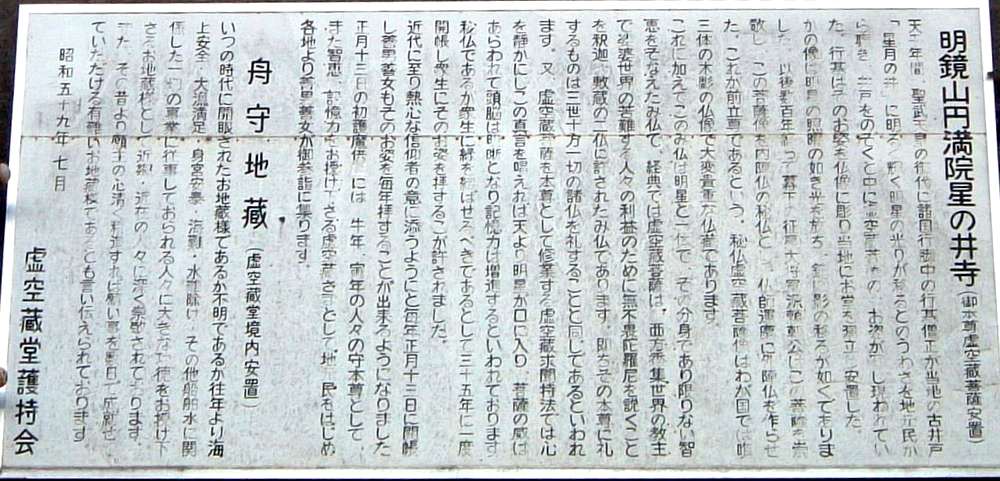 明鏡山円満院星の井寺（御本尊虚空蔵菩薩安置）
天平年間 聖武天皇の御代に諸国行脚中の行基僧正が当地の古井戸
「星月の井」に明るく輝く明星の光りが移るとのうわさを地元民か
ら聴き 井戸をのぞくと中に虚空蔵菩薩の お姿が し現われてい
た。行基はそのお姿を仏像に彫り当地に本堂を建立し安置した。
かの像は明星の照曜の如き光を放ち 鏡に影の移るが如くであります
した。以後数百年 って 幕下 征夷大将軍源頼朝公はこの菩薩を崇
敬し この菩薩像を内陣仏の秘仏とし 仏師運慶に前陣仏を作らせ
た。これが前立尊であるという。秘仏虚空蔵菩薩像はわが国では唯
三体の木彫の仏像で大変貴重な仏像であります。
これに加えてこのみ仏は明星と一体で その分身であり限りない智
恵をそなえたみ仏で、経典では虚空蔵菩薩は、西方香集世界の教主
で娑婆世界の苦難する人々の利益のために無不畏陀羅尼を説くこと
を釈迦 敷蔵の二仏に許されたみ仏であります。即ちその本尊に礼
するものは三世十方一切の諸仏を礼することと同じであるといわれ
ます。又、虚空蔵菩薩を本尊として修業する虚空蔵求聞持法では心
を静かにしこの真言を唱えれば天より明星が口に入り、菩薩の威は
あらわれて頭脳は明晰となり記憶力は増進するといわれております
秘仏であるが衆生に縁を結ばせるべきであるとして三十五年に一度
開帳し衆生にそのお姿を拝することが許されました。
近代に至り熱心な信仰者の意に添うようにと毎年正月十三日に開帳
し善男善女もそのお姿を毎年拝することが出来るようになりました
正月十三日の初護摩供には 牛年、寅年の人々の守本尊として、
また智恵 記憶力をお授け下さる虚空蔵さまとして地元民をはじめ
各地より善男善女が御参詣に集ります。
舟守地蔵（虚空蔵堂境内安置）
いつの時代に開眼されたお地蔵様であるか不明であるが往年より海
上安全 大漁満足 身宮安泰 海難・水難除け その他船舶水に関
係した一切の事業に従事しておられる人々に大きな功徳をお授け下
さるお地蔵様として近郷・近在の人々に深く崇敬されております。
また、その昔より願主の心清く精進すれば願い事を即日 成就せ
ていただける有難いお地蔵様であるとも言い伝えられております。
昭和五十九年七月
虚空蔵堂護持会